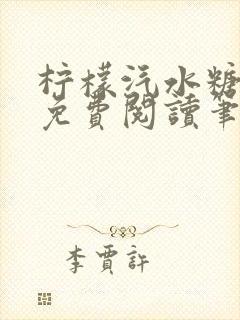 柠檬汽水糖
免費閱讀筆
李賈許